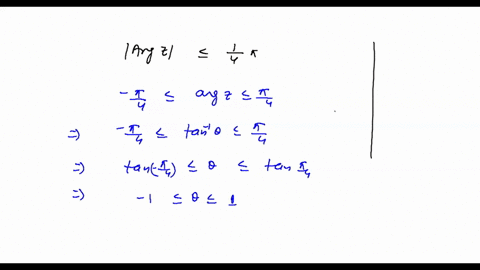 |Arg z| ≤ 1/4 π
-π/4 ≤ arg z ≤ π/4
⇒) -π/4 ≤ tan⁻¹ θ ≤ π/4
⇒) tan(-π/4) ≤ θ ≤ tan π/4
⇒) -1 ≤ θ ≤ 1